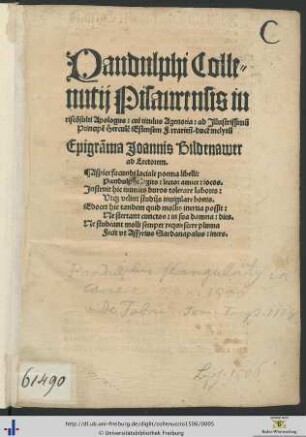 C
Pandulphi Colle-
nutij Pisaurensis iu
riscōsulti Apologus: cui titulus Agenoria: ad Illustrissimū
Principē Herculē Estensem Ferrariēn. ducē inclytū
Epigrāma Joannis Hildenawer
ad Lectorem.
Aspice facundi faciale poema libelli:
Pandulphi
Instruit hic iuuenes duros tolerare labores:
studijs inuigilare bonis.
Edocet hic tandem quid mollis inertia possit:
Ne stertant cunctos: in sua damna: dies.
Ne studeant molli semper requiescere pluma
Fecit vt Assyrius Sardanapalus: iners.
61490
http://dl.ub.uni-freiburg.de/diglit/collenuccio1506/0005
© Universitätsbibliothek Freiburg